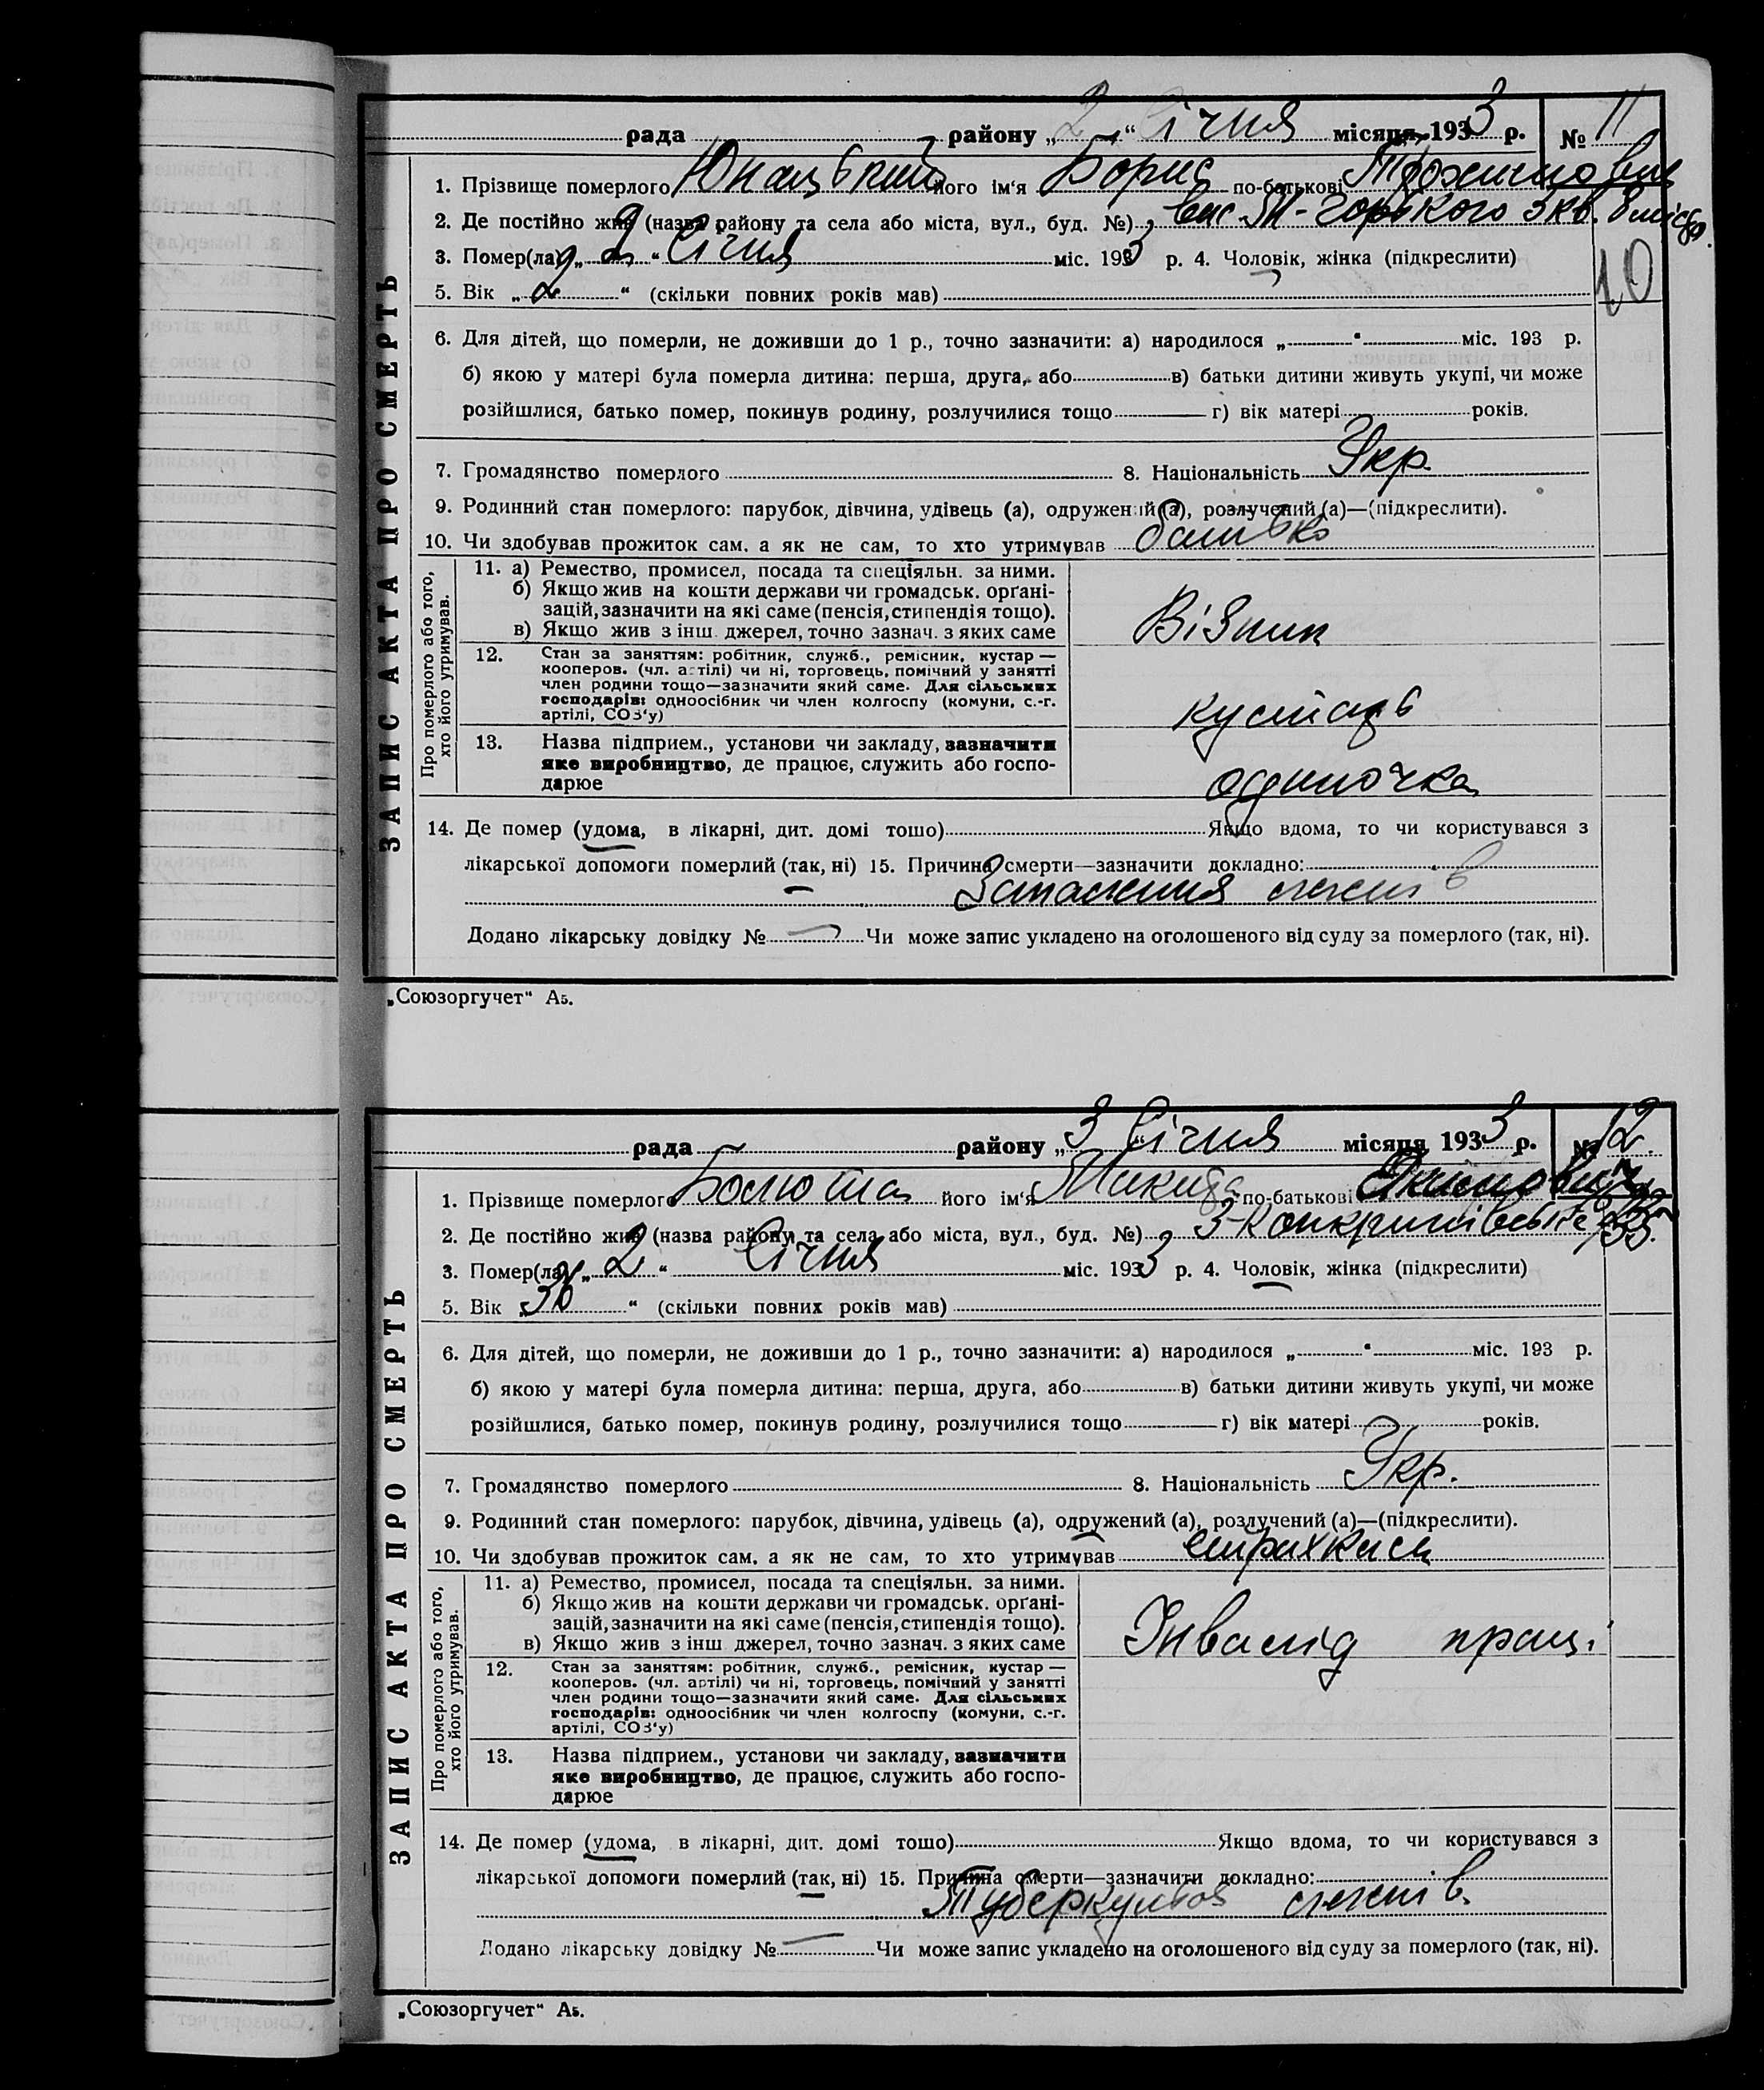 рада району „2“ Січня місяця 1933 р. № 11
1. Прізвище померлого його ім'я Борис по-батькові
2. Де постійно жив (назва району та села або міста, вул., буд. №)
3. Помер(ла) „2“ Січня міс. 1933 р. 4. Чоловік, жінка (підкреслити)
10
5. Вік „2“ (скільки повних років мав)
6. Для дітей, що померли, не доживши до 1 р., точно зазначити: а) народилося „ “ міс. 193 р.
б) якою у матері була померла дитина: перша, друга, або в) батьки дитини живуть укупі, чи може
розійшлися, батько помер, покинув родину, розлучилися тощо г) вік матері років.
7. Громадянство померлого 8. Національність Укр.
9. Родинний стан померлого: парубок, дівчина, удівець (а), одружений (а), розлучений (а)—(підкреслити).
10. Чи здобував прожиток сам, а як не сам, то хто утримував батько
ЗАПИС АКТА ПРО СМЕРТЬ
Про померлого або того,
хто його утримував.
11. а) Ремество, промисел, посада та спеціяльн. за ними.
б) Якщо жив на кошти держави чи громадськ. орґані-
зацій, зазначити на які саме (пенсія, стипендія тощо).
в) Якщо жив з інш. джерел, точно зазнач. з яких саме
Візник
12. Стан за заняттям: робітник, служб., ремісник, кустар —
кооперов. (чл. артілі) чи ні, торговець, помічний у занятті
член родини тощо—зазначити який саме. Для сільських
господарів: одноосібник чи член колгоспу (комуни, с.-г.
артілі, СОЗ'у)
кустарь
13. Назва підприєм., установи чи закладу, зазначити
яке виробництво, де працює, служить або госпо-
дарює
одиночка
14. Де помер (удома, в лікарні, дит. домі тошо) Якщо вдома, то чи користувався з
лікарської допомоги померлий (так, ні) 15. Причина смерти—зазначити докладно:
Запалення легенів
Додано лікарську довідку № Чи може запис укладено на оголошеного від суду за померлого (так, ні).
„Союзоргучет“ А5.
рада району „3“ Січня місяця 1933 р. № 12.
1. Прізвище померлого його ім'я Микита по-батькові
2. Де постійно жив (назва району та села або міста, вул., буд. №)
3. Помер(ла) „2“ Січня міс. 1933 р. 4. Чоловік, жінка (підкреслити)
5. Вік „ “ (скільки повних років мав)
6. Для дітей, що померли, не доживши до 1 р., точно зазначити: а) народилося „ “ міс. 193 р.
б) якою у матері була померла дитина: перша, друга, або в) батьки дитини живуть укупі, чи може
розійшлися, батько помер, покинув родину, розлучилися тощо г) вік матері років.
7. Громадянство померлого 8. Національність Укр.
9. Родинний стан померлого: парубок, дівчина, удівець (а), одружений (а), розлучений (а)—(підкреслити).
10. Чи здобував прожиток сам, а як не сам, то хто утримував страхкаса
ЗАПИС АКТА ПРО СМЕРТЬ
Про померлого або того,
хто його утримував.
11. а) Ремество, промисел, посада та спеціяльн. за ними.
б) Якщо жив на кошти держави чи громадськ. орґані-
зацій, зазначити на які саме (пенсія, стипендія тощо).
в) Якщо жив з інш. джерел, точно зазнач. з яких саме
Інвалід праці
12. Стан за заняттям: робітник, служб., ремісник, кустар —
кооперов. (чл. артілі) чи ні, торговець, помічний у занятті
член родини тощо—зазначити який саме. Для сільських
господарів: одноосібник чи член колгоспу (комуни, с.-г.
артілі, СОЗ'у)
13. Назва підприєм., установи чи закладу, зазначити
яке виробництво, де працює, служить або госпо-
дарює
14. Де помер (удома, в лікарні, дит. домі тошо) Якщо вдома, то чи користувався з
лікарської допомоги померлий (так, ні) 15. Причина смерти—зазначити докладно:
Туберкульоз легенів.
Додано лікарську довідку № Чи може запис укладено на оголошеного від суду за померлого (так, ні).
„Союзоргучет“ А5.